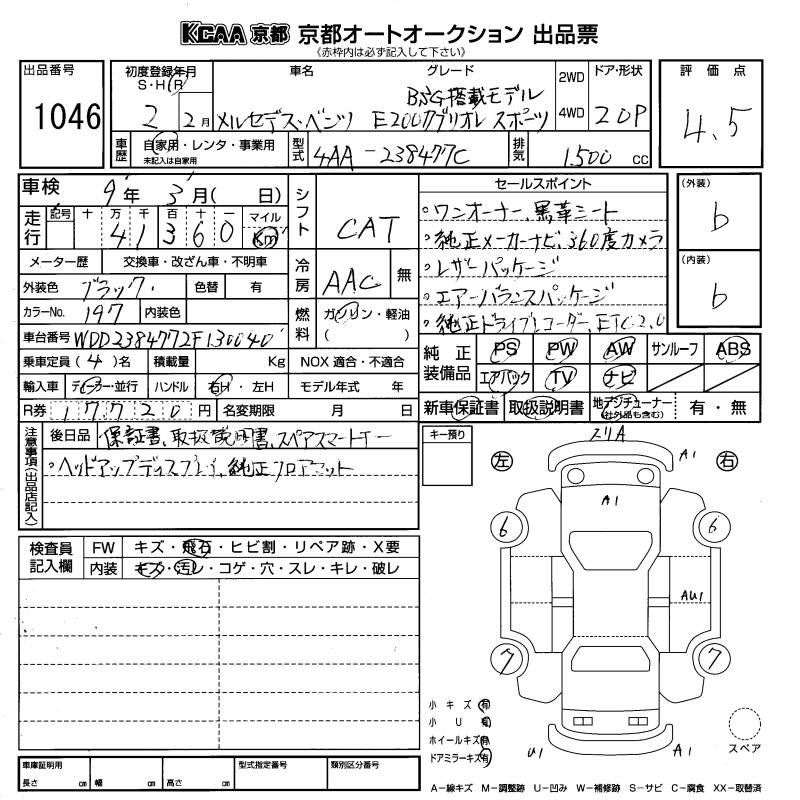 KCAA 京都 京都オートオークション 出品票
《赤枠内は必ず記入して下さい》
出品番号
1046
初度登録年月
S・H・R
2 2月
車名
メルセデス・ベンツ
グレード
BSG搭載モデル
E200カブリオレ スポーツ
2WD
4WD
ドア・形状
2DP
評価点
4.5
車歴
自家用・レンタ・事業用
未記入は自家用
型式
4AA-238477C
排気
1500 CC
車検 9年 3月( 日)
走行
記号 十 万 千 百 十 一 マイル
4 1 3 6 0 Km
メーター歴 交換車・改ざん車・不明車
外装色 ブラック 色替 有
カラーNo. 197 内装色
車台番号 WDD2384772F130040
乗車定員 (4)名 積載量 Kg NOX 適合・不適合
輸入車 ディーラー・並行 ハンドル 右H・左H モデル年式 年
R券 17720円 名変期限 月 日
シフト CAT
冷房 AAC 無
燃料 ガソリン・軽油
( )
セールスポイント
。ワンオーナー、黒革シート
。純正メーカーナビ、360度カメラ
。レザーパッケージ
。エアーバランスパッケージ
。純正ドライブレコーダー、ETC2.0
(外装)
b
(内装)
b
純正装備品 PS PW AW サンルーフ ABS
エアバック TV ナビ
新車保証書 取扱説明書 地デジチューナー (社外品も含む) 有・無
注意事項(出品店記入)
後日品 保証書、取扱説明書、スペアスマートキー
。ヘッドアップディスプレイ、純正フロアマット
キー預り
検査員記入欄
FW キズ・飛石・ヒビ割・リペア跡・X要
内装 キズ・汚レ・コゲ・穴・スレ・キレ・破レ
スリA
左
A1
右
A1
6
6
AU1
7
7
U1
A1
小キズ 有
小U 有
ホイールキズ 有
ドアミラーキズ 有
スペア
車庫証明用
長さ cm 幅 cm 高さ cm
型式指定番号
類別区分番号
A-線キズ M-調整跡 U-凹み W-補修跡 S-サビ C-腐食 XX-取替済